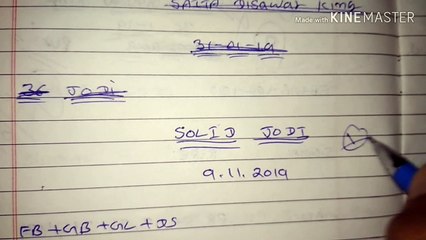 Made with KINEMASTER
SATTA Disawar King
31-01-19
36 JODi
SOLID JODI
9.11.2019
FB + GB + GL + DS